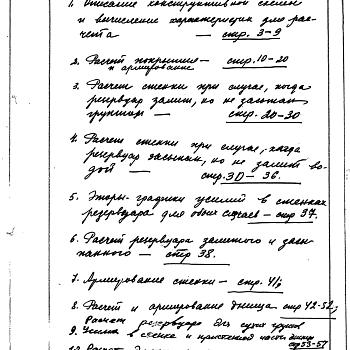 1. Описание конструктивной схемы
и вычисление характеристик для рас-
чета — стр. 3-9
2. Расчет покрытия — стр. 10-20
и армирование
3. Расчет стенки при случае, когда
резервуар залит, но не засыпан
грунтом — стр. 20-30
4. Расчет стенки при случае, когда
резервуар засыпан, но не залит во-
дой — стр. 30-36.
5. Эпюры-графики усилий в стенках
резервуара для обоих случаев — стр 37.
6. Расчет резервуара залитого и засы-
панного — стр 38.
7. Армирование стенки — стр. 41
8. Расчет и армирование днища стр 42-52,
Расчет резервуара для сухих грунтов
9. Усилия в стенке и примыкающей части днища
стр 53-57